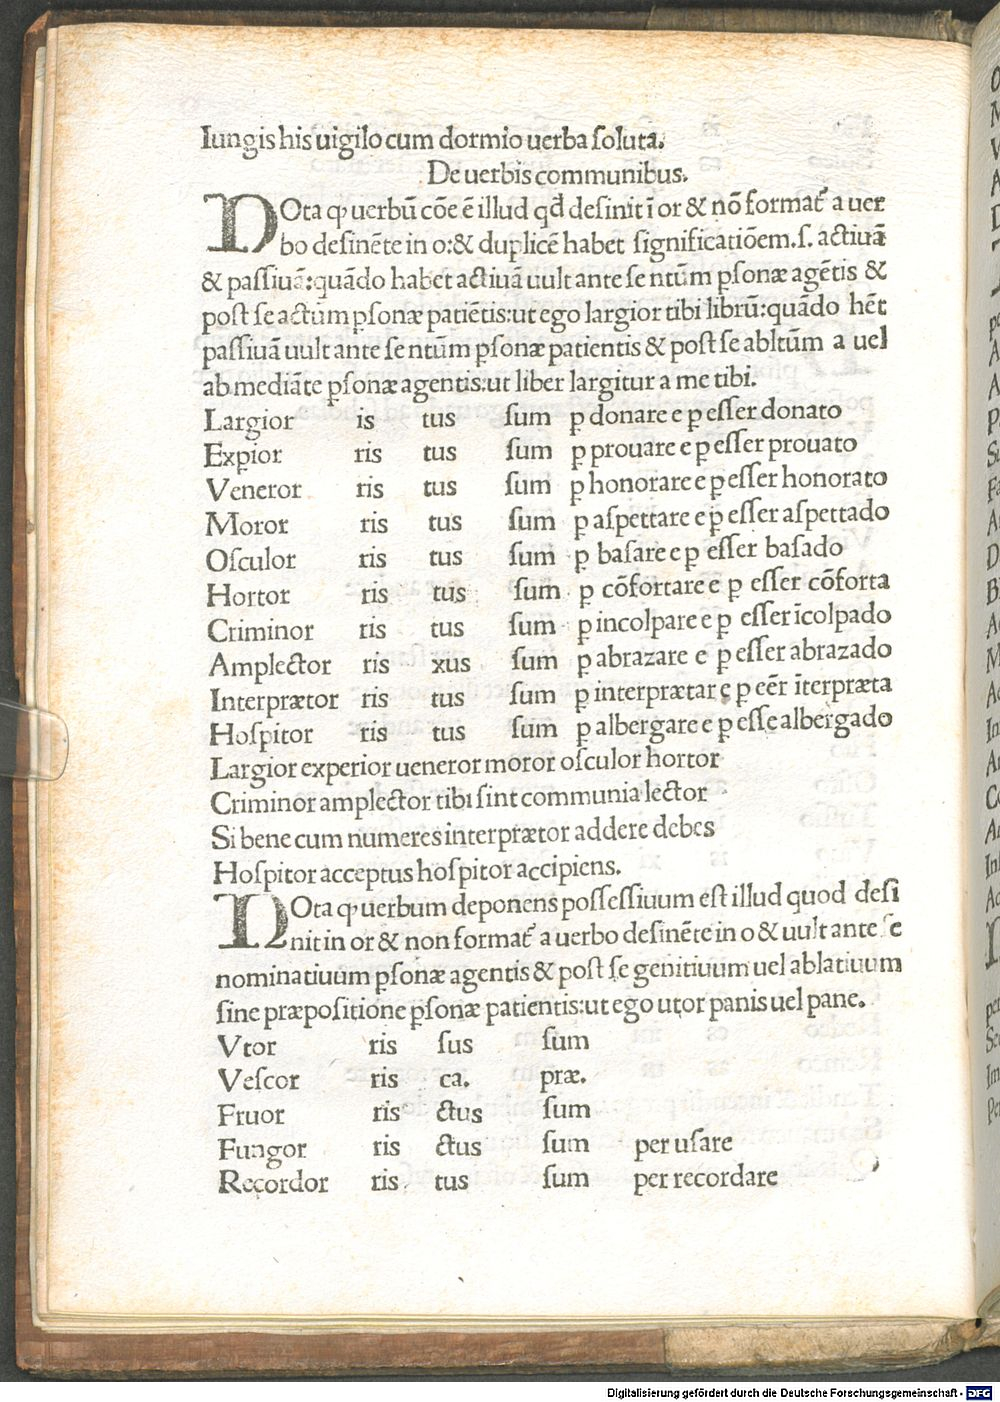 Iungis his uigilo cum dormio uerba soluta.
De uerbis communibus.
NOta ꝙ uerbũ cõe ẽ illud qđ desinit ĩ or & nõ formať a uer
bo desinẽte in o:& duplicẽ habet significatiõem.s. actiuã
& passiuã:quãdo habet actiuã uult ante se ntũm ꝑsonæ agẽtis &
post se actũm ꝑsonæ patiẽtis:ut ego largior tibi librũ:quãdo hẽt
passiuã uult ante se ntũm ꝑsonæ patientis & post se abltũm a uel
ab mediãte ꝑsonæ agentis:ut liber largitur a me tibi.
Largior is tus sum ꝑ donare e ꝑ esser donato
Expior ris tus sum ꝑ prouare e ꝑ esser prouato
Veneror ris tus sum ꝑ honorare e ꝑ esser honorato
Moror ris tus sum ꝑ aspettare e ꝑ esser aspettado
Osculor ris tus sum ꝑ basare e ꝑ esser basado
Hortor ris tus sum ꝑ cõfortare e ꝑ esser cõforta
Criminor ris tus sum ꝑ incolpare e ꝑ esser ĩcolpado
Amplector ris xus sum ꝑ abrazare e ꝑ esser abrazado
Interprætor ris tus sum ꝑ interprætar e ꝑ eẽr ĩterpræta
Hospitor ris tus sum ꝑ albergare e ꝑ esse albergado
Largior experior ueneror moror osculor hortor
Criminor amplector tibi sint communia lector
Si bene cum numeres interprætor addere debes
Hospitor acceptus hospitor accipiens.
NOta ꝙ uerbum deponens possessiuum est illud quod desi
nit in or & non formať a uerbo desinẽte in o & uult ante se
nominatiuum ꝑsonæ agentis & post se genitiuum uel ablatiuum
sine præpositione ꝑsonæ patientis:ut ego utor panis uel pane.
Vtor ris sus sum
Vescor ris ca. præ.
Fruor ris ctus sum
Fungor ris ctus sum per usare
Recordor ris tus sum per recordare
Digitalisierung gefördert durch die Deutsche Forschungsgemeinschaft - DFG